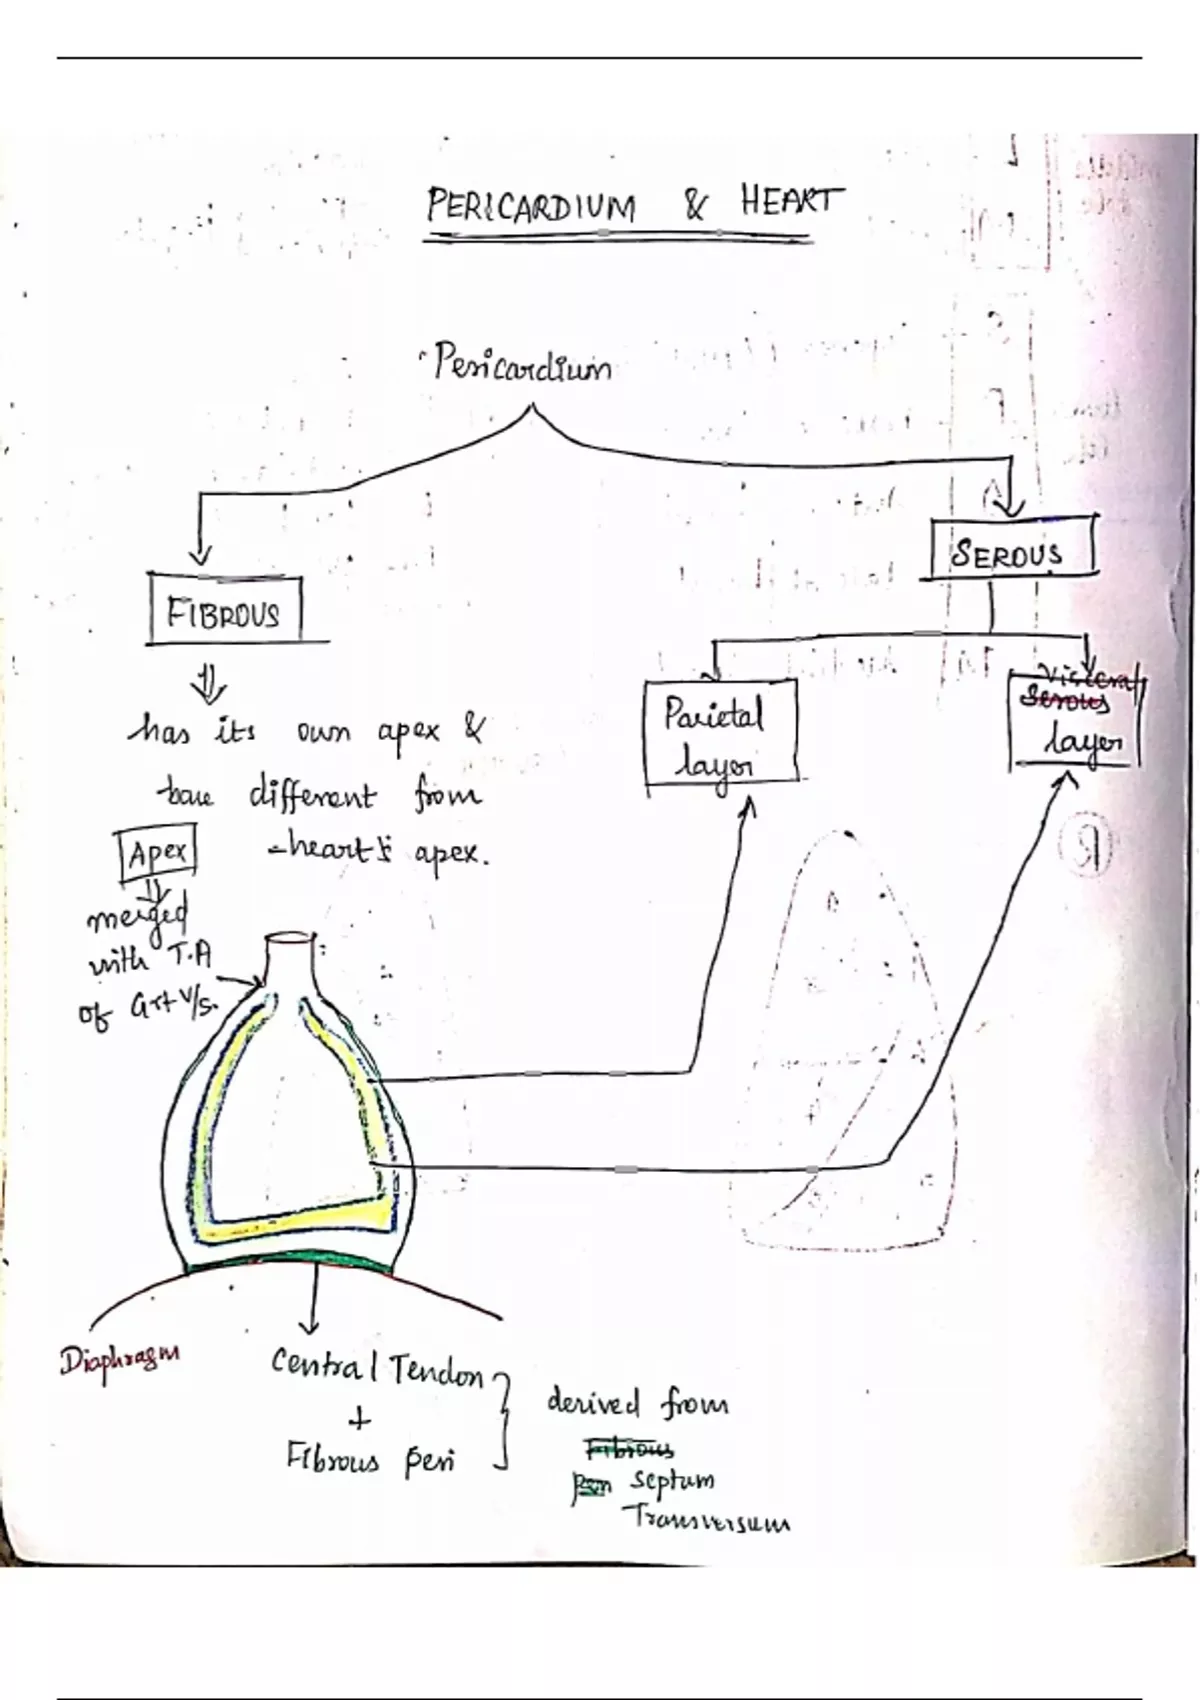 PERICARDIUM & HEART
Pericardium
FIBROUS
SEROUS
has its own apex &
base different from
heart's apex.
Parietal
layer
Visceral
Serous
layer
Apex
merged
with T.A
of Grt V/s.
Diaphragm
Central Tendon
+
Fibrous peri
derived from
Fibrous
peri septum
Transversum